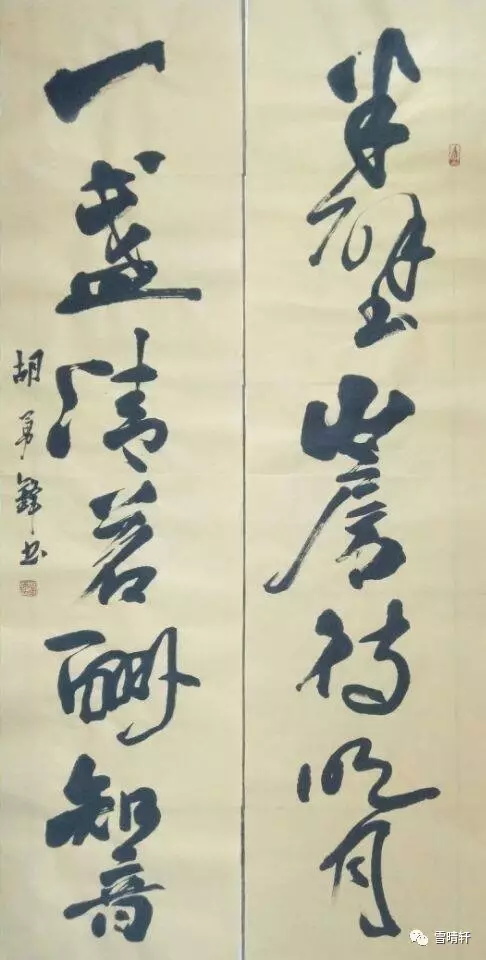 半壁山房待明月
一盏清茗酬知音
胡勇书
雪晴轩